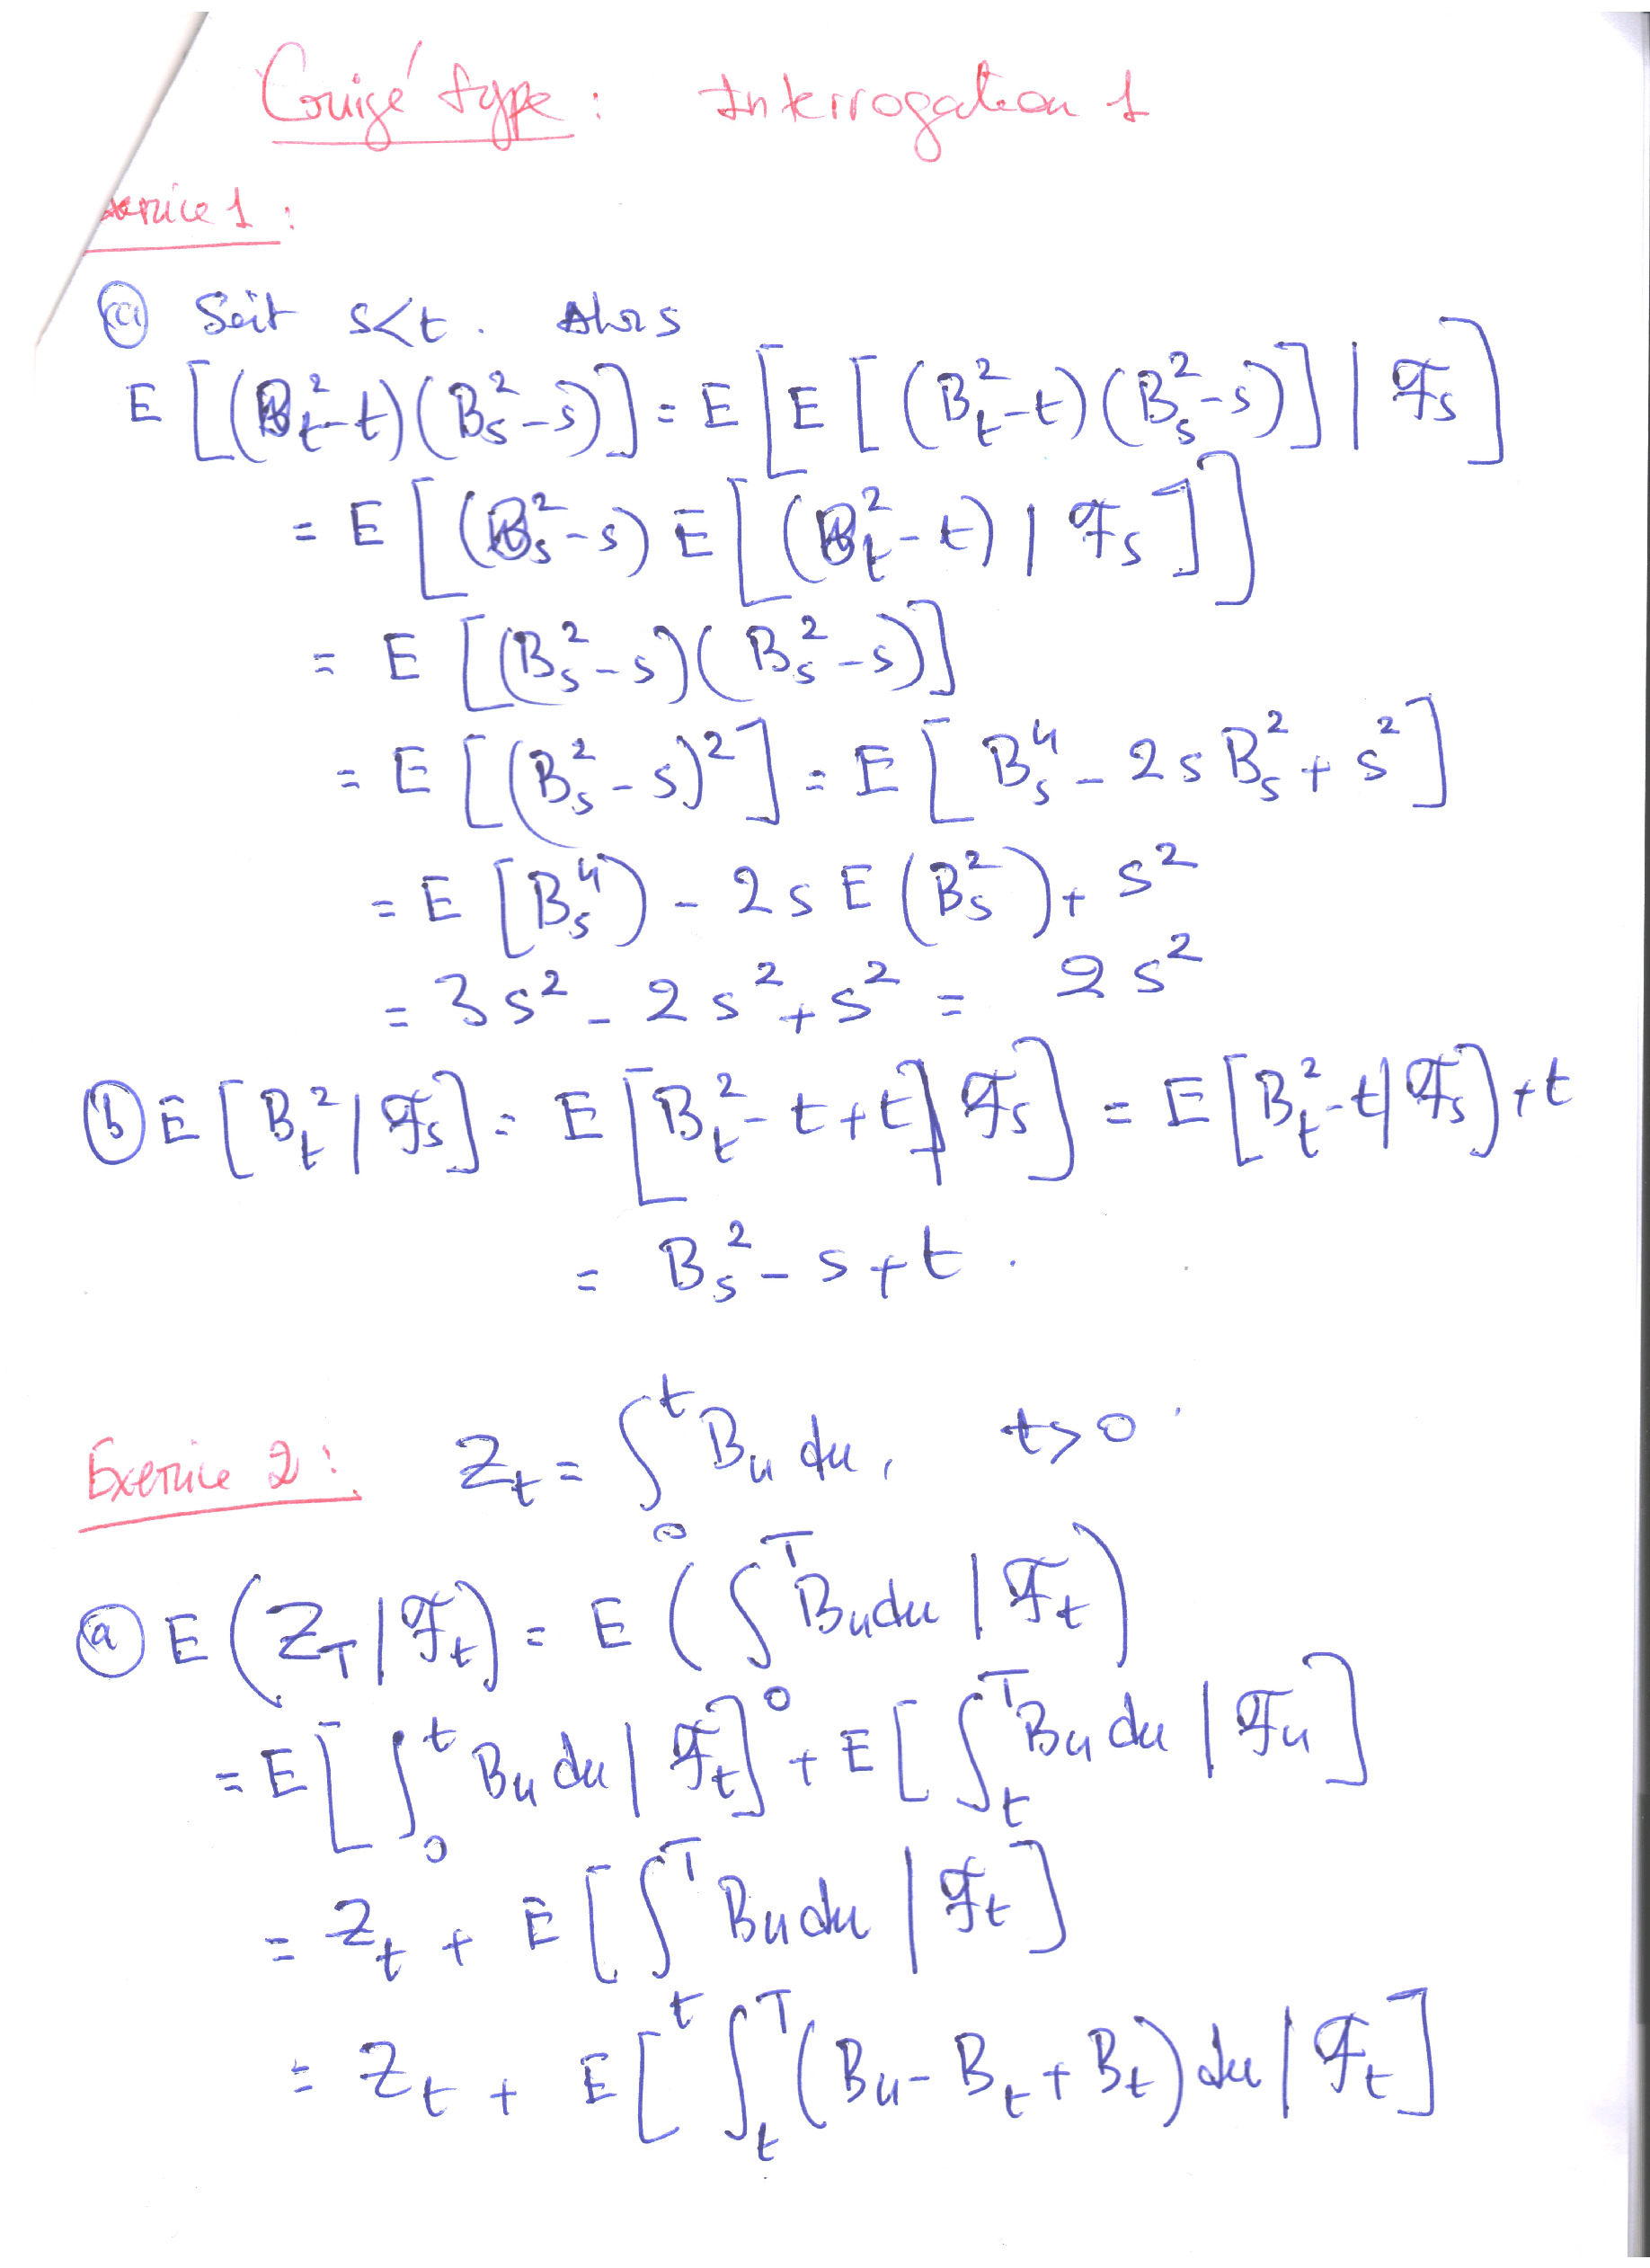 Corrigé type : Interrogation 1
xercice 1 :
(a) Soit s<t. Alors
E[(B_t^2-t)(B_s^2-s)] = E[E[(B_t^2-t)(B_s^2-s)] | F_s]
= E[(B_s^2-s) E[(B_t^2-t) | F_s]]
= E[(B_s^2-s)(B_s^2-s)]
= E[(B_s^2-s)^2] = E[B_s^4 - 2s B_s^2 + s^2]
= E[B_s^4) - 2s E(B_s^2) + s^2
= 3s^2 - 2s^2 + s^2 = 2s^2
(b) E[B_t^2 | F_s] = E[B_t^2 - t + t] | F_s] = E[B_t^2 - t | F_s) + t
= B_s^2 - s + t .
Exercice 2 : Z_t = ∫_0^t B_u du, t>0
(a) E(Z_T | F_t) = E(∫_0^T B_u du | F_t)
= E[∫_0^t B_u du | F_t] + E[∫_t^T B_u du | F_u]
= Z_t + E[∫_t^T B_u du | F_t]
= Z_t + E[∫_t^T (B_u - B_t + B_t) du | F_t]